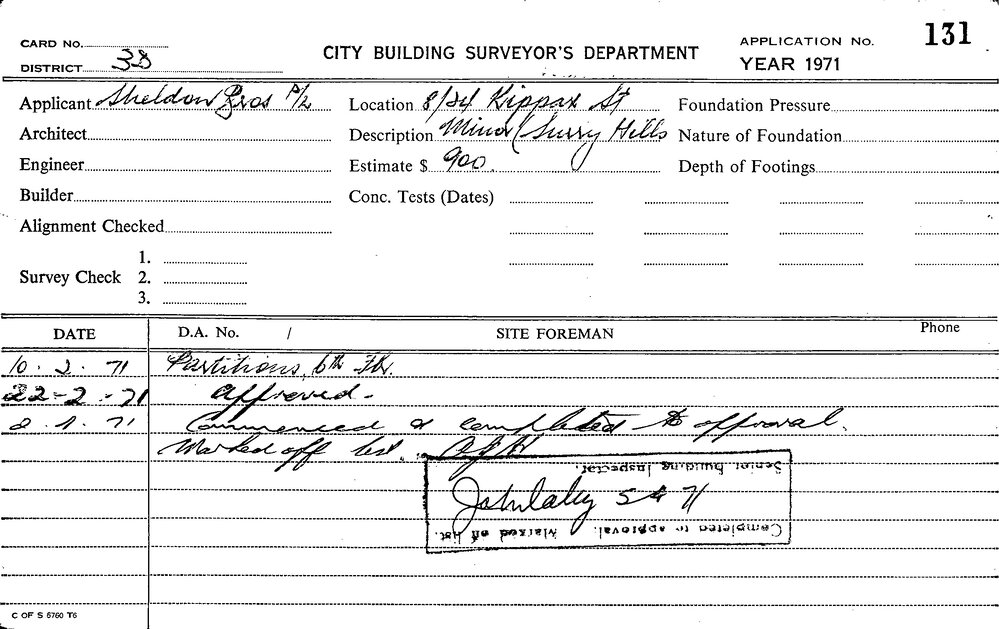 CARD No.
DISTRICT 38
CITY BUILDING SURVEYOR'S DEPARTMENT
APPLICATION No. 131
YEAR 1971
Applicant Sheldon Bros P/L
Location 8/24 Kippax St
Foundation Pressure
Architect
Description Minor (Surry Hills
Nature of Foundation
Engineer
Estimate $ 900.
Depth of Footings
Builder
Conc. Tests (Dates)
Alignment Checked
Survey Check
1.
2.
3.
DATE
D.A. No. /
SITE FOREMAN
Phone
10. 2. 71 Partitions, 6th Flr.
22-2-71 approved-
71 Commenced & completed to approval.
Marked off list
Senior Building Inspector.
John Daley 5 4 71
Completed to approval. Marked off list.
C OF S 6760 T6